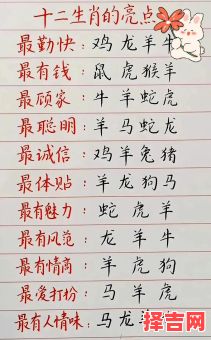 十二生肖的亮点
最勤快：鸡龙羊牛
最有钱：鼠虎猴羊
最顾家：牛羊蛇虎
最聪明：羊马蛇龙
最诚信：鸡羊兔猪
最体贴：羊龙狗马
最有魅力：蛇虎羊
最有风范：龙羊牛
最有情商：羊虎狗
最爱打扮：马羊虎
最有人情味：马龙
择吉网